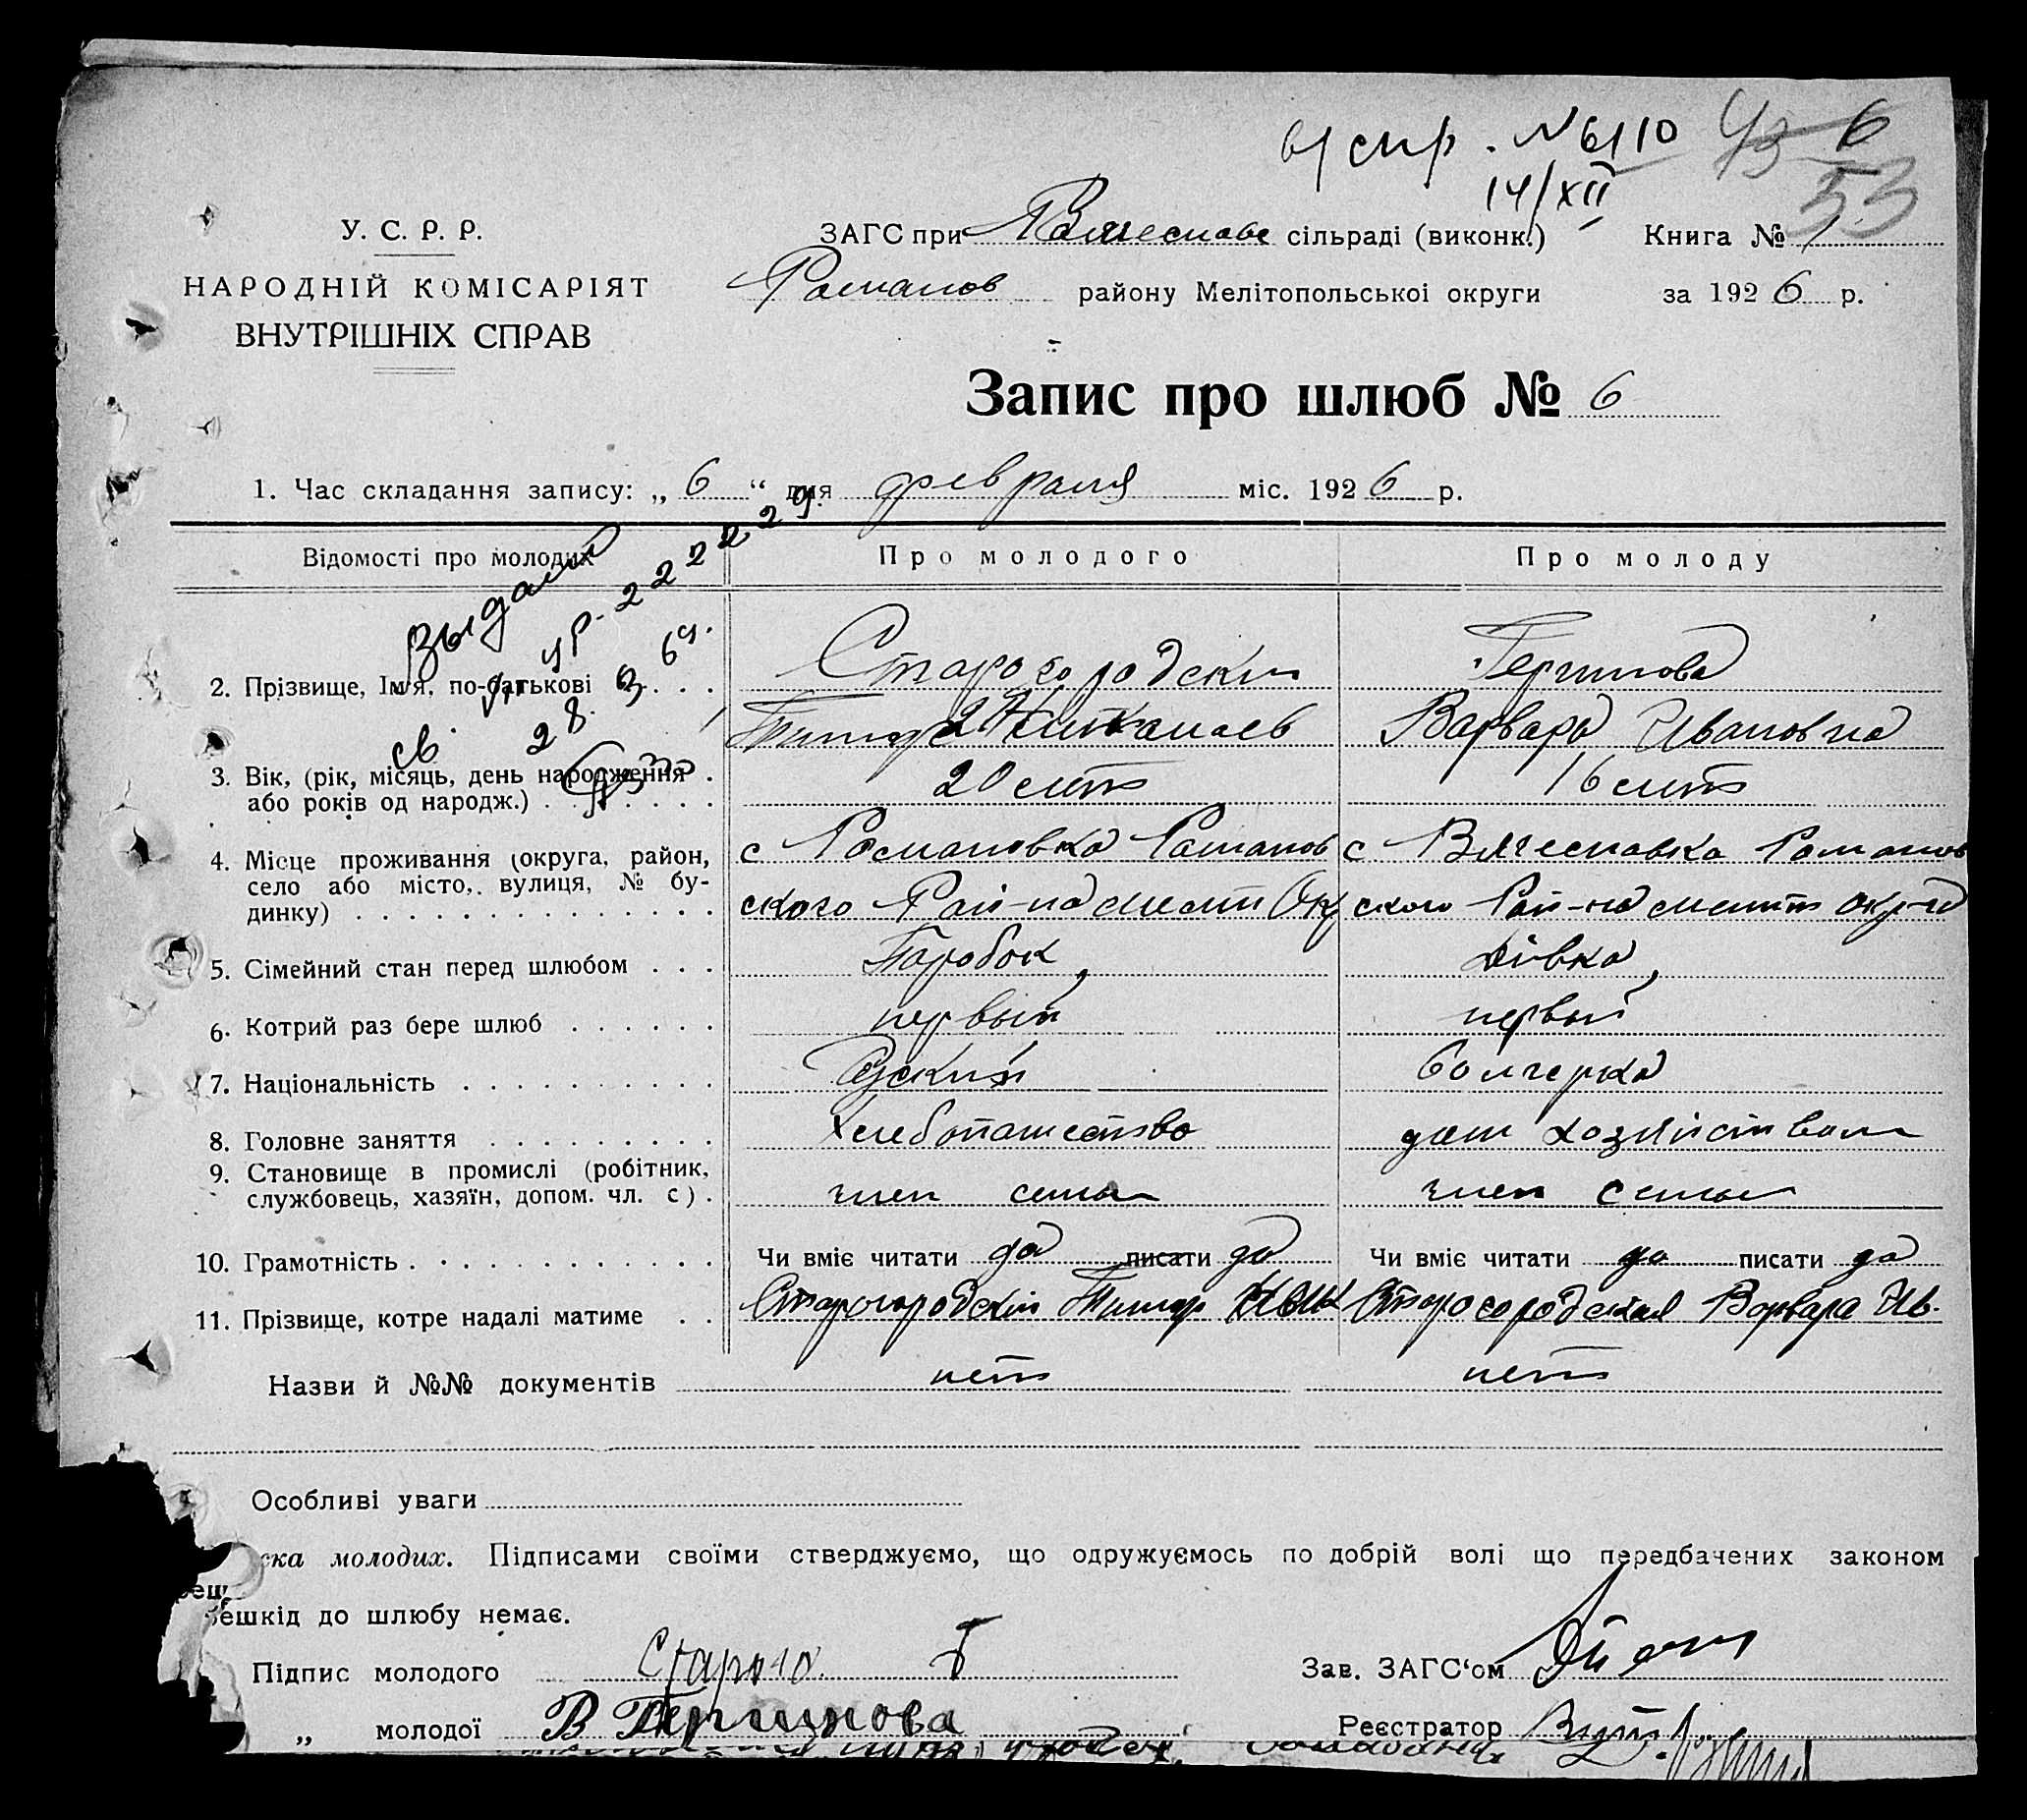 спр. № 6110 43 6
14/XII 53
У. С. Р. Р.
НАРОДНІЙ КОМІСАРІЯТ
ВНУТРІШНІХ СПРАВ
ЗАГС при Вячеславе сільраді (виконк.) Книга № 1
Романов району Мелітопольськоі округи за 1926 р.
Запис про шлюб № 6
1. Час складання запису: „ 6 “ дня февраля міс. 1926 р.
Відомості про молодих Про молодого Про молоду
2. Прізвище, Ім'я, по-батькові Старогородский Гергинова
Николаев Варвара Ивановна
3. Вік, (рік, місяць, день народження 20 лет 16 лет
або років од народж.)
4. Місце проживання (округа, район, с Романовка Романов с Вячеславка Романов
село або місто, вулиця, № бу- ского Рай-на мелит Окр ского Рай-на мелит окр-га
динку)
5. Сімейний стан перед шлюбом Паробок, дівка,
6. Котрий раз бере шлюб первый первый
7. Національність Руский болгерка
8. Головне заняття Хлебопашество дом хозяйством
9. Становище в промислі (робітник,
службовець, хазяїн, допом. чл. с). член семьи член семьи
10. Грамотність Чи вміє читати да писати да Чи вміє читати да писати да
11. Прізвище, котре надалі матиме Старогородский Старогородская Варвара Ив.
Назви й №№ документів нет нет
Особливі уваги
ска молодих. Підписами своїми стверджуємо, що одружуємось по добрій волі що передбачених законом
решкід до шлюбу немає.
Підпис молодого Старого Зав. ЗАГС‘ом
„ молодої В Гергинова Реєстратор